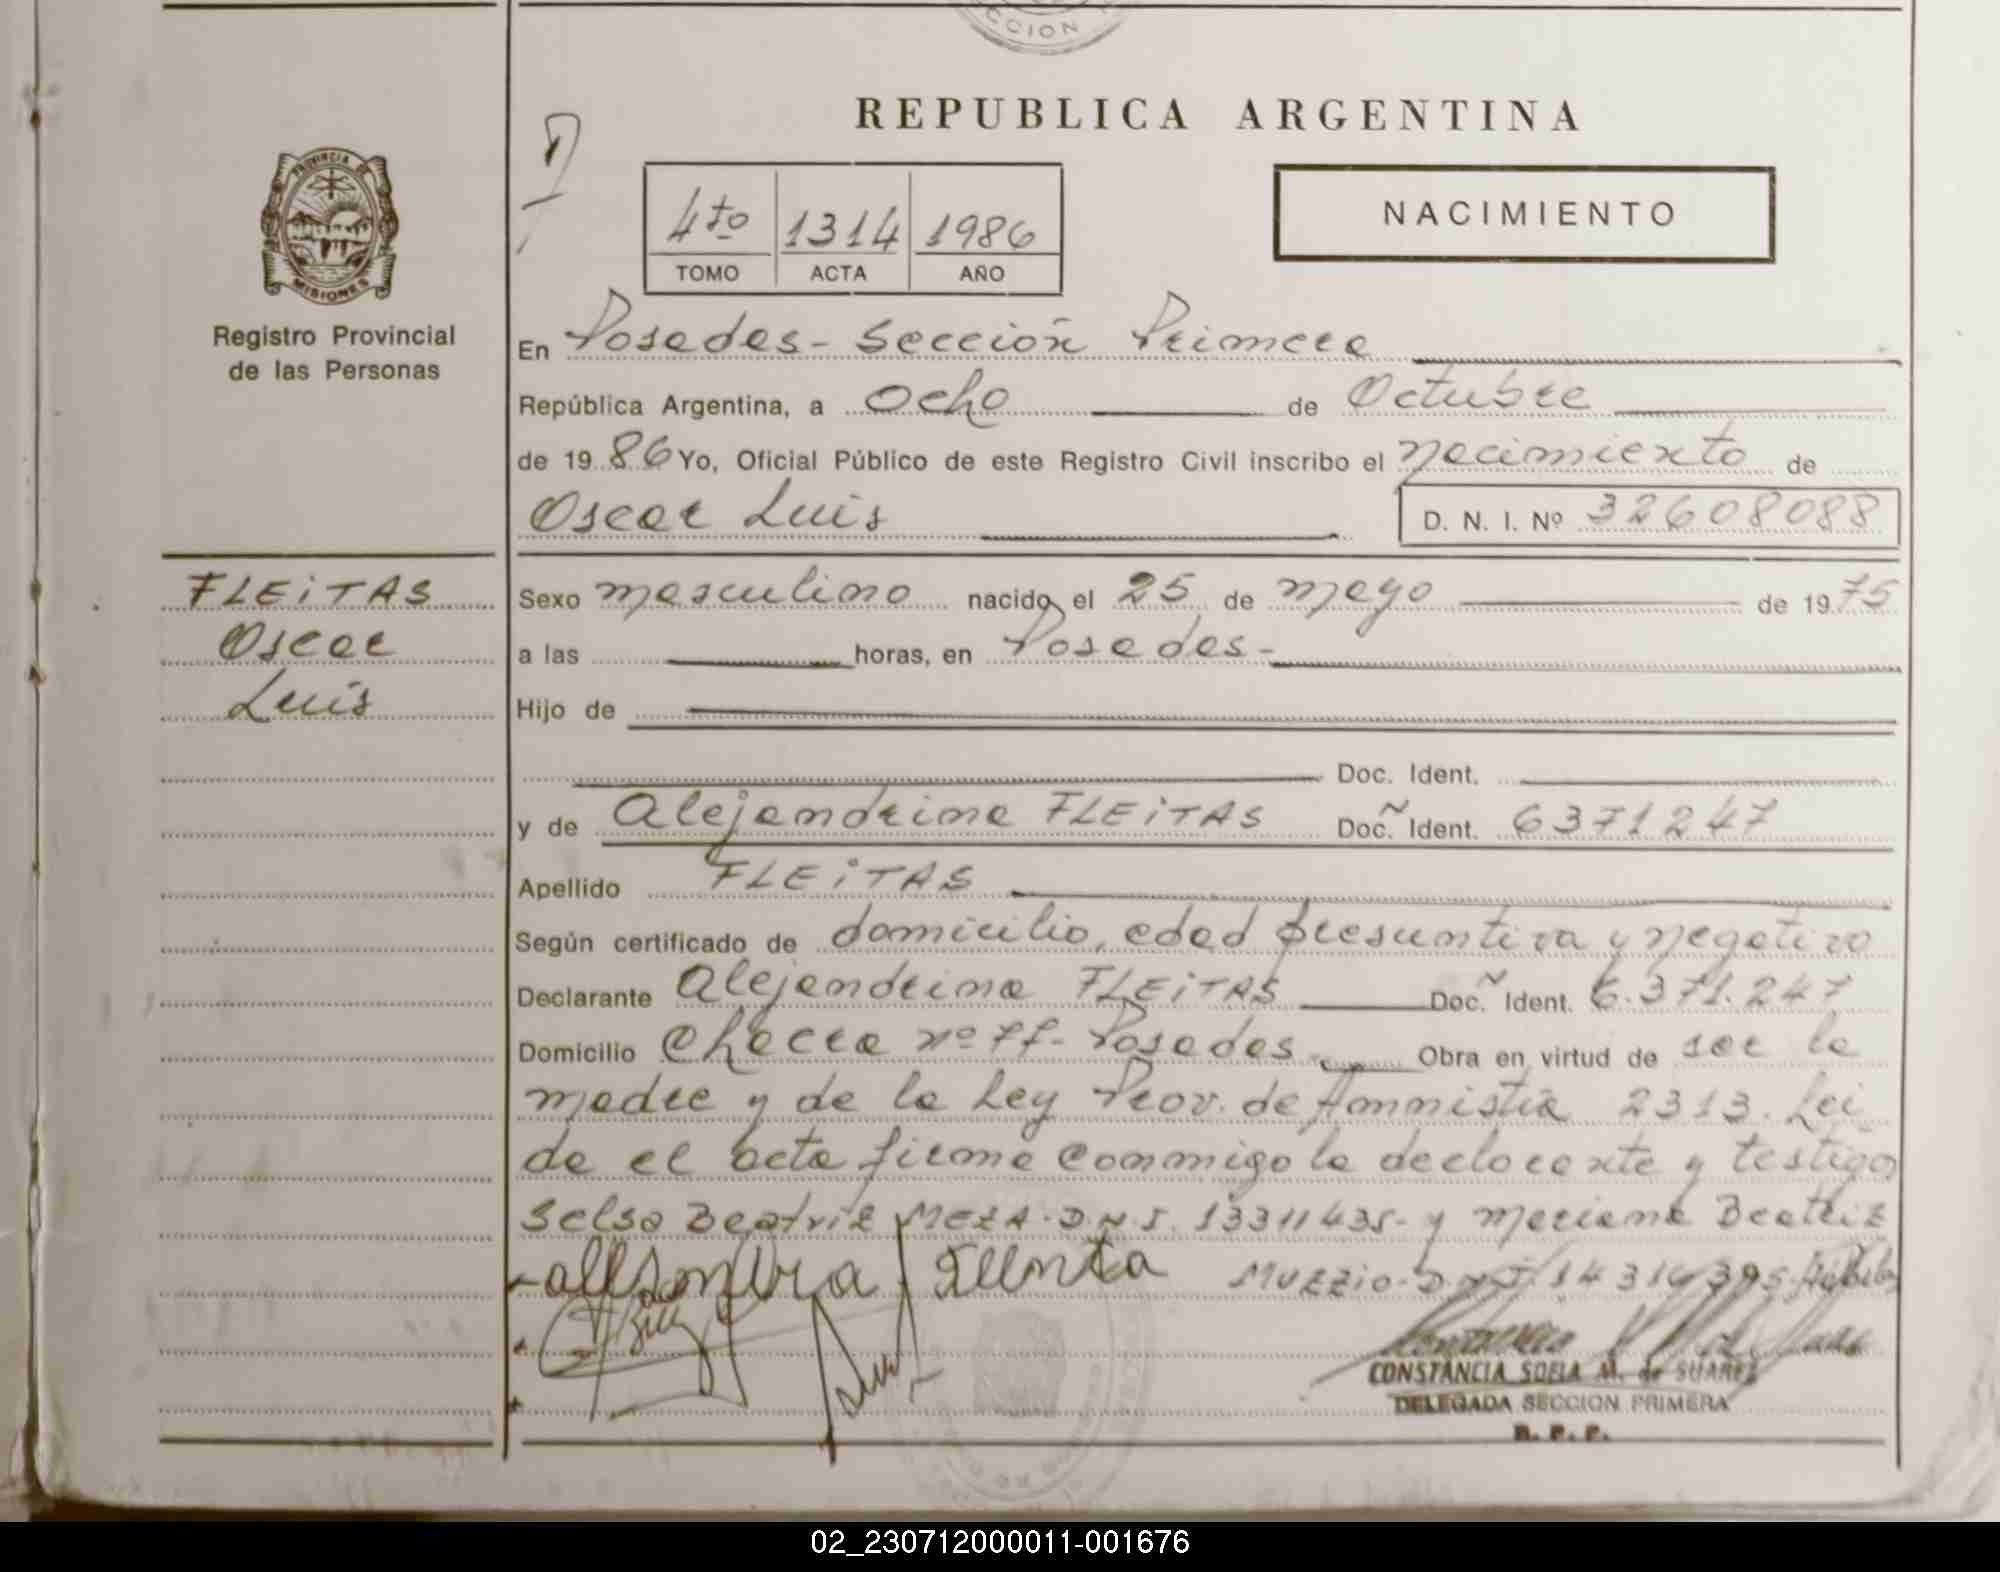 CCION
REPUBLICA ARGENTINA
PROVINCIA DE
MISIONES
Registro Provincial
de las Personas
4to 1314 1986
TOMO ACTA AÑO
NACIMIENTO
En Posadas - Sección Primera
República Argentina, a Ocho de Octubre
de 19 86 Yo, Oficial Público de este Registro Civil inscribo el Nacimiento de
Oscar Luis D. N. I. Nº 32608088
FLEITAS
Oscar
Luis
Sexo masculino nacido el 25 de mayo de 19 75
a las horas, en Posadas -
Hijo de
Doc. Ident.
y de Alejandrina FLEITAS Doc. Ident. 6371247
Apellido FLEITAS
Según certificado de domicilio, edad presuntiva y negativo
Declarante Alejandrina FLEITAS Doc. Ident. 6.371.247
Domicilio Chacra nº 77 - Posadas Obra en virtud de ser la
madre y de la Ley Prov. de Amnistía 2313. Leí
da el acta firma conmigo la declarante y testigos
Selsa Beatriz MEZA - D.N.I. 13311435 - y Mariana Beatriz
MUZZIO - D.N.I. 14314395 -
CONSTANCIA SOFIA M. de SUAREZ
DELEGADA SECCION PRIMERA
R. P. P.
02_230712000011-001676